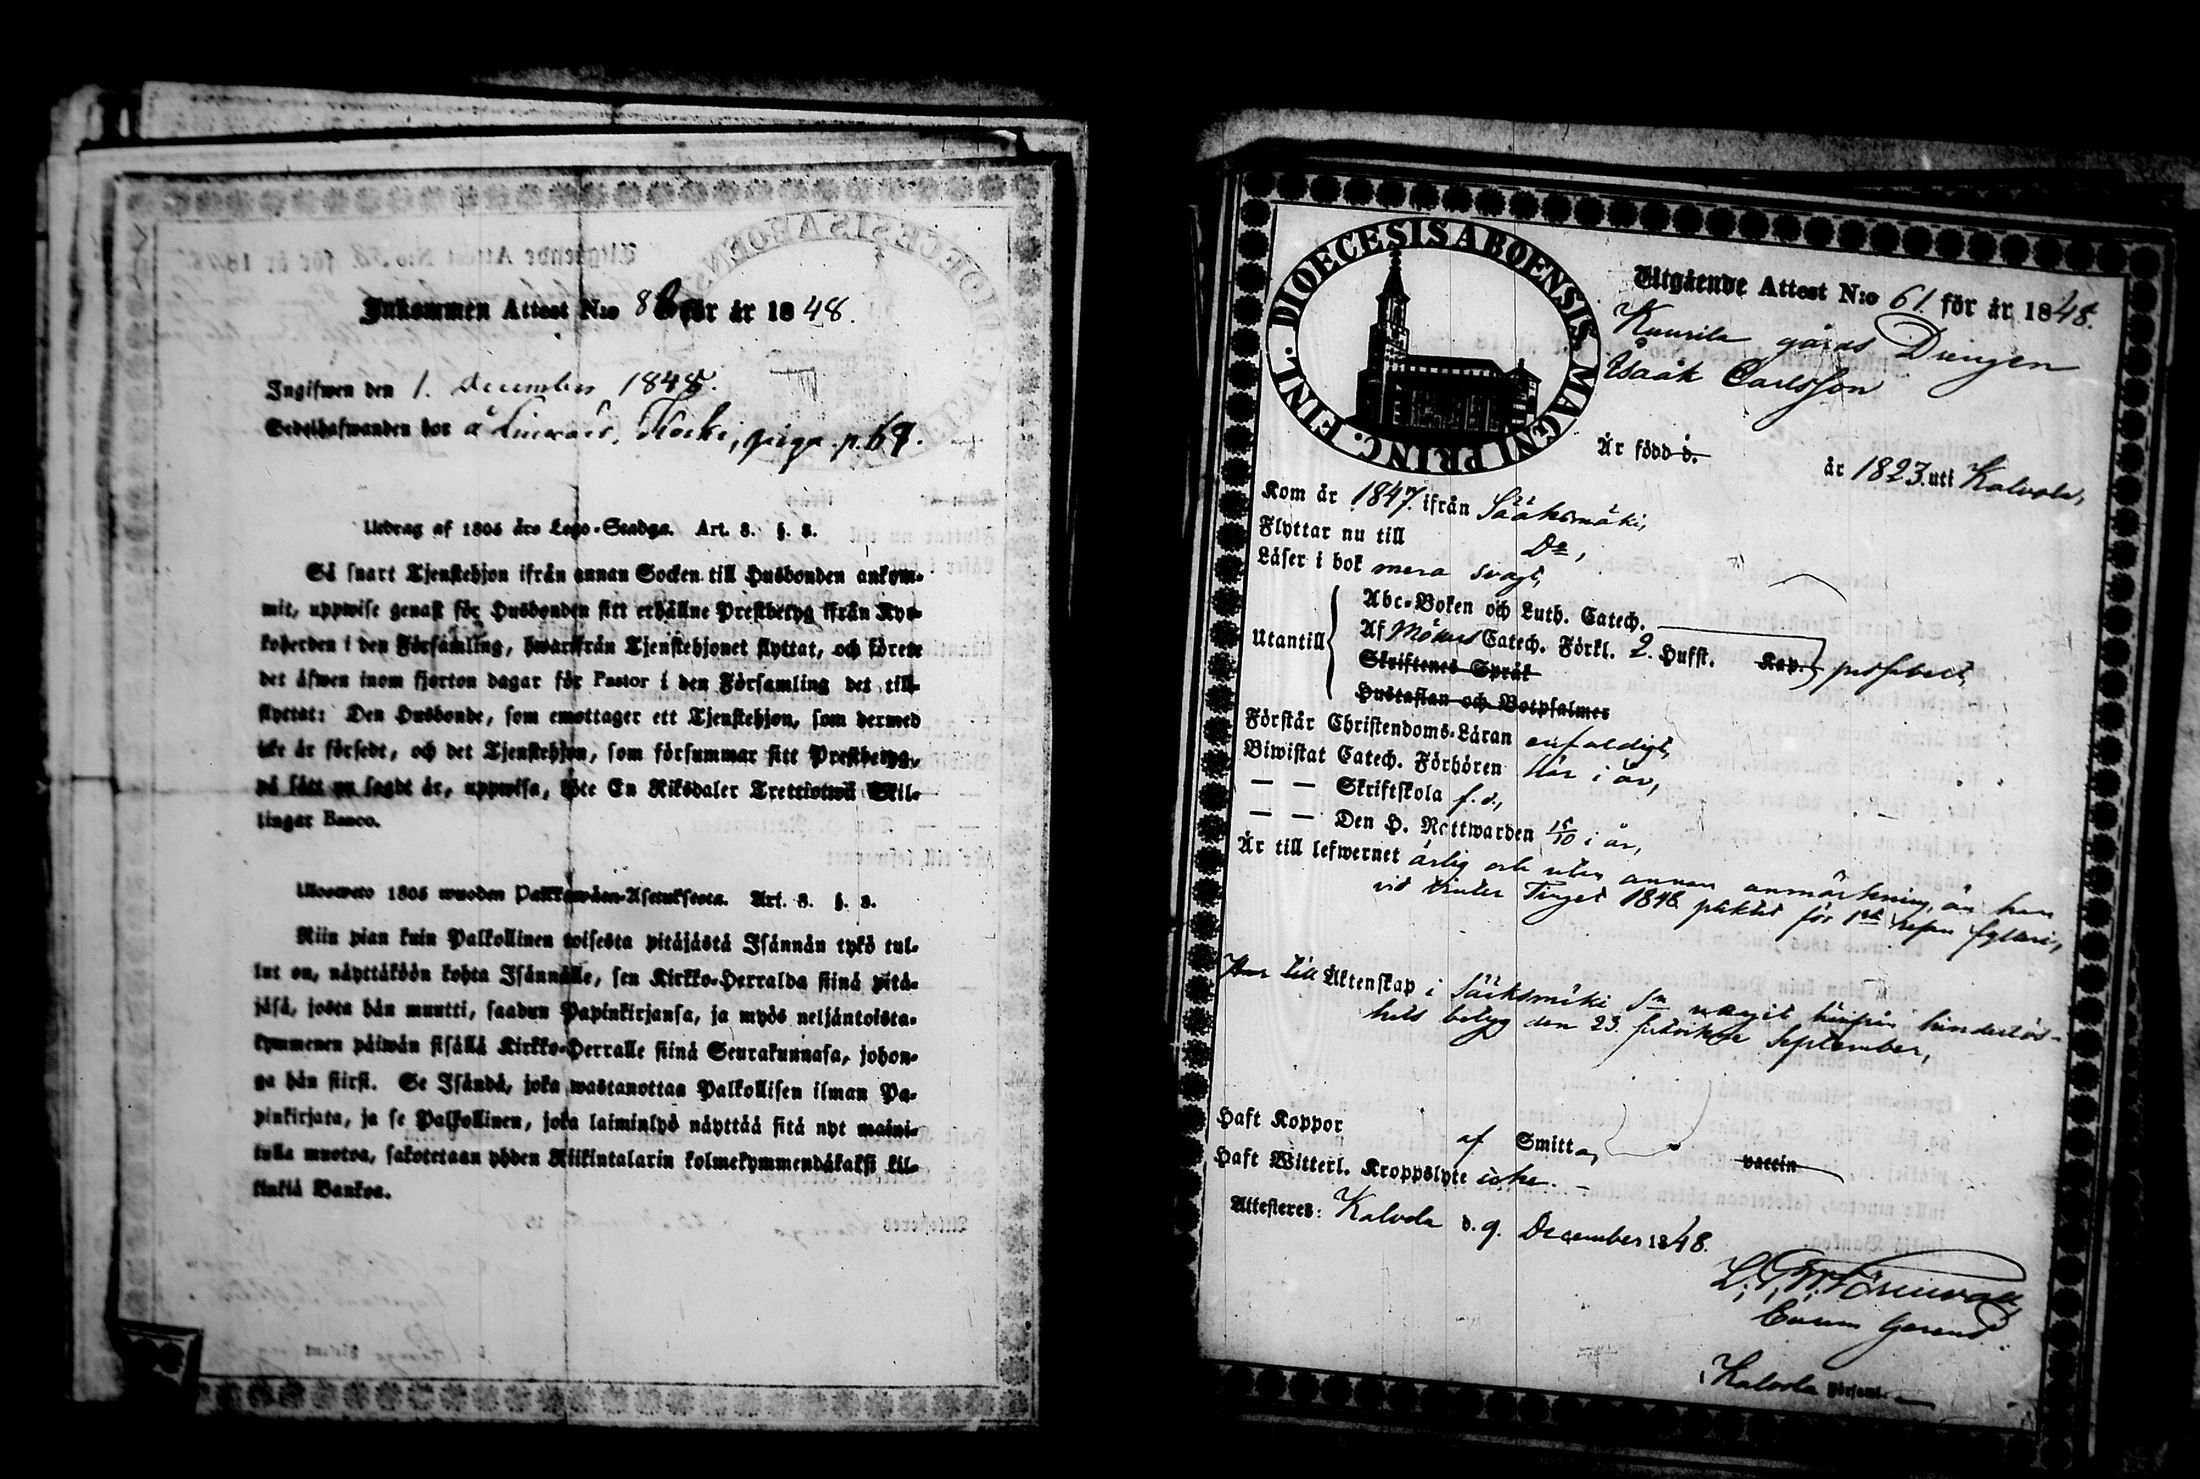 Inkommen Attest N:o 8 för år 1848.
Ingifwen den 1. December 1848.
Sedelhafwanden bor å piga p. 69.
Utdrag af 1805 års Lego-Stadga. Art. 3. §. 3.
Så snart Tjenstehjon ifrån annan Socken till Husbonden ankom-
mit, uppwise genast för Husbonden sitt erhållne Prestbetyg ifrån Kyr-
koherden i den Församling, hwarifrån Tjenstehjonet flyttat, och förete
det äfwen inom fjorton dagar för Pastor i den Församling det till-
flyttat: Den Husbonde, som emottager ett Tjenstehjon, som dermed
icke är försedt, och det Tjenstehjon, som försummar sitt Prestbetyg,
på sätt nu sagdt är, uppwisa, böte En Riksdaler Trettiotwå Skil-
lingar Banco.
Ulosweto 1805 wuoden Palkkawäen-Asetuksesta. Art. 3. §. 3.
Niin pian kuin Palkollinen toisesta pitäjästä Isännän tykö tul-
lut on, näyttäköön kohta Isännälle, sen Kirkko-Herralda siinä pitä-
jäsä, josta hän muutti, saadun Papinkirjansa, ja myös neljäntoista-
kymmenen päiwän sisällä Kirkko-Herralle siinä Seurakunnasa, johon-
ga hän siirsi. Se Isändä, joka wastanottaa Palkollisen ilman Pa-
pinkirjata, ja se Palkollinen, joka laiminlyö näyttää sitä nyt maini-
tulla muotoa, sakotetaan yhden Riikintalarin kolmekymmendäkaksi kil-
linkiä Bankoa.
DIOECESIS ABOENSIS. MAGNI PRINC. FINL.
Utgående Attest N:o 61. för år 1848.
Kuurila gårds Drengen
Isaak Carlsson
Är född d. år 1823. uti Kalvola,
Kom år 1847. ifrån Sääksmäki,
Flyttar nu till Do,
Läser i bok mera svagt,
Utantill
Abc-Boken och Luth. Catech.
Af Möllers Catech. Förkl. 2. Hufst. Kap.
Skriftenes Språk
Hustaflan och Botpsalmer
passabelt,
Förstår Christendoms-Läran enfaldigt,
Biwistat Catech. Förhören här i år,
— — Skriftskola f. d.,
— — Den H. Nattwarden 15/10 i år,
Är till lefwernet ärlig och utan annan anmärkning, än han
vid vinter Tinget 1848 pliktat för 1sta resan fylleri,
Har till Äktenskap i Sääksmäki Sn utagit härifrån hinderlös-
hets betyg den 23. September,
Haft Koppor af Smitto, vaccin
Haft Witterl. Kroppslyte icke.
Attesteres: Kalvola d. 9. December 1848.
Kalvola Församl.